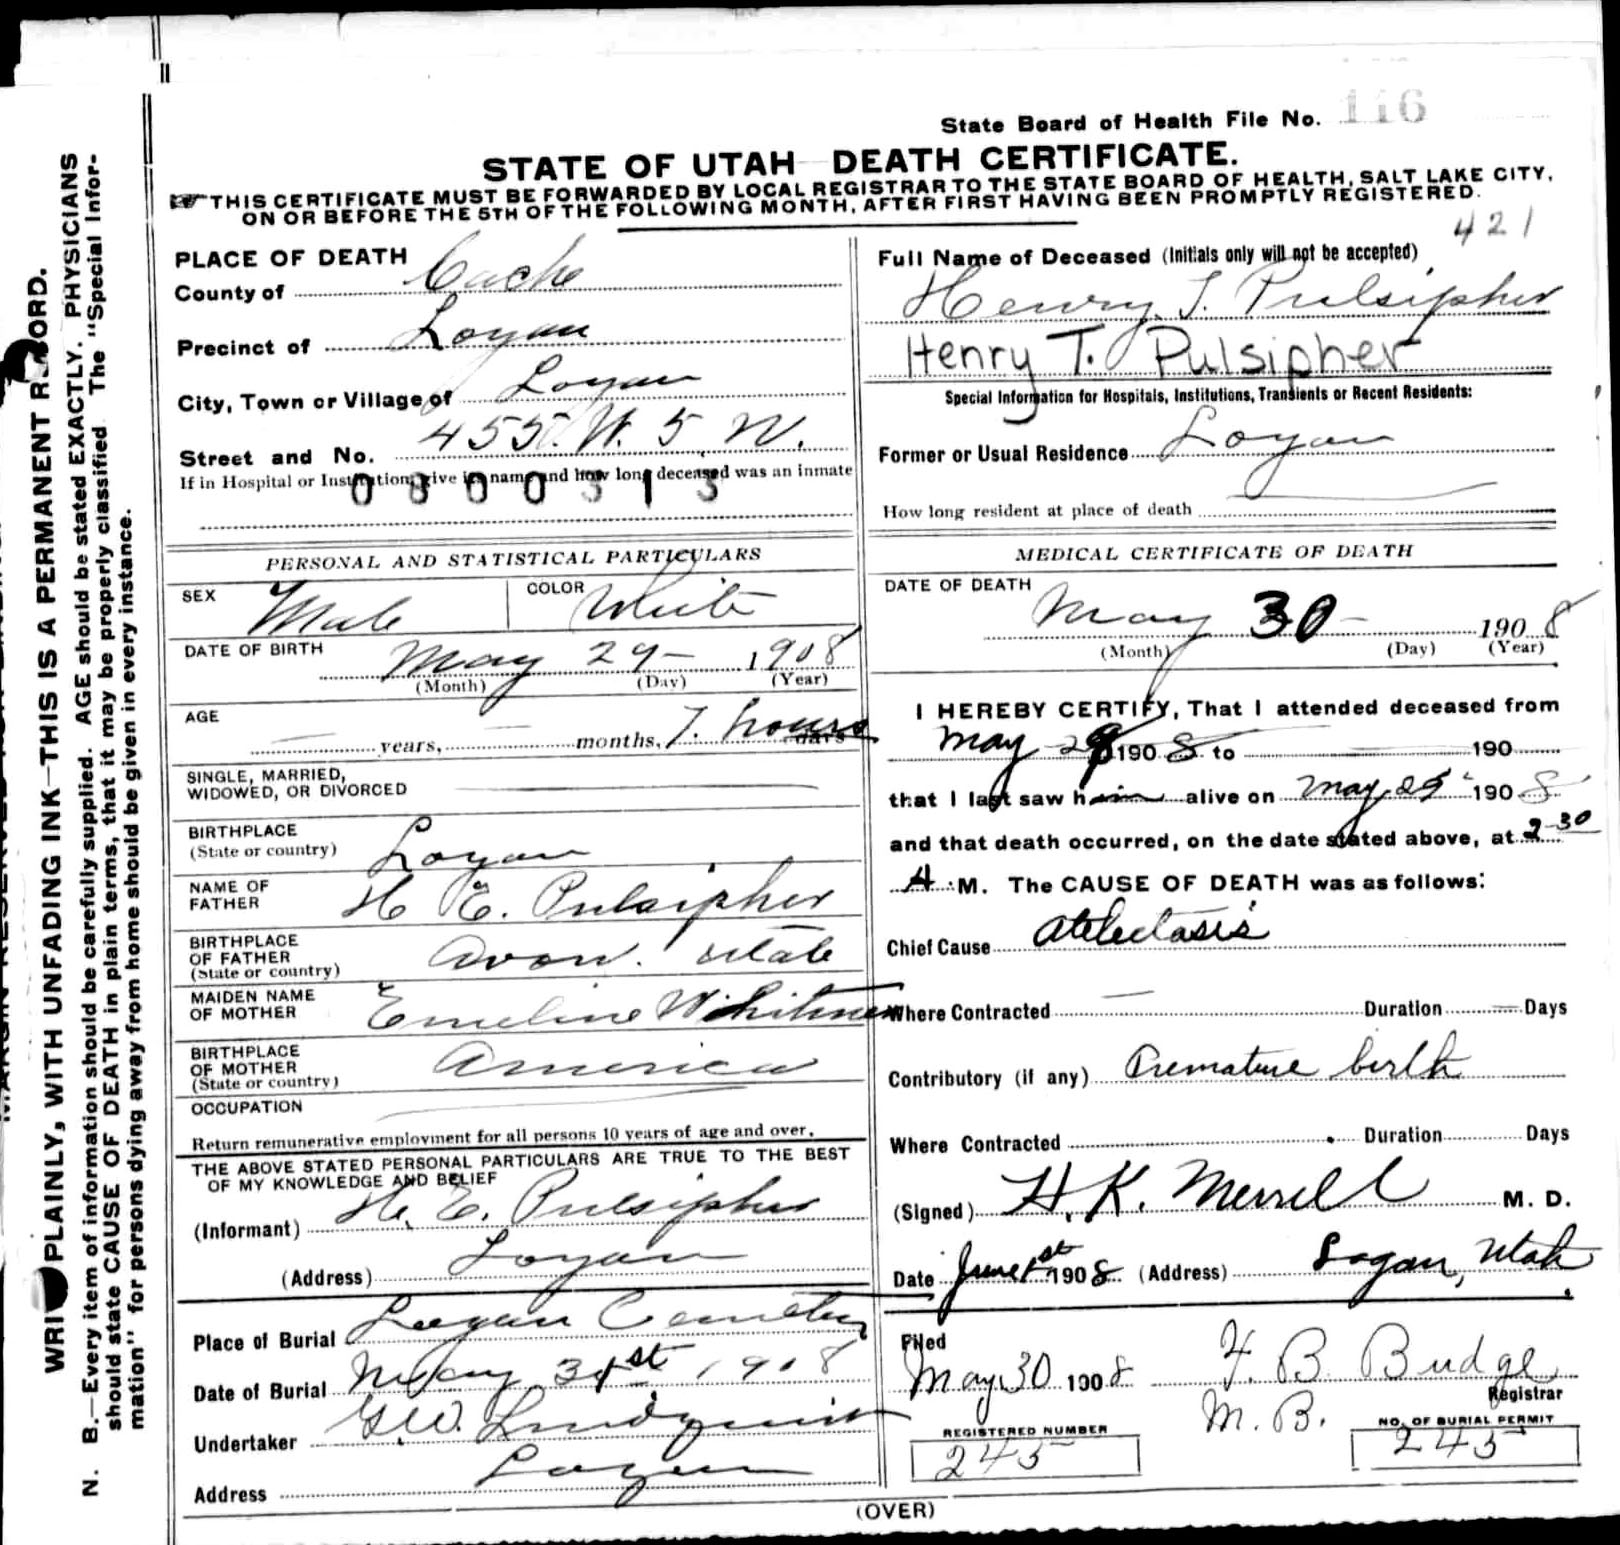 State Board of Health File No. 116
STATE OF UTAH DEATH CERTIFICATE.
THIS CERTIFICATE MUST BE FORWARDED BY LOCAL REGISTRAR TO THE STATE BOARD OF HEALTH, SALT LAKE CITY,
ON OR BEFORE THE 5TH OF THE FOLLOWING MONTH, AFTER FIRST HAVING BEEN PROMPTLY REGISTERED.
421
PLACE OF DEATH
County of Cache
Precinct of Logan
City, Town or Village of Logan
Street and No. 455. W. 5 N.
If in Hospital or Institution, give its name and how long deceased was an inmate
0800313
Full Name of Deceased (Initials only will not be accepted)
Henry T. Pulsipher
Henry T. Pulsipher
Special Information for Hospitals, Institutions, Transients or Recent Residents:
Former or Usual Residence Logan
How long resident at place of death
PERSONAL AND STATISTICAL PARTICULARS
SEX Male COLOR White
DATE OF BIRTH May 29 - 1908
(Month) (Day) (Year)
AGE years, months, 7. hours days
SINGLE, MARRIED,
WIDOWED, OR DIVORCED
BIRTHPLACE
(State or country) Logan
NAME OF
FATHER H E. Pulsipher
BIRTHPLACE
OF FATHER
(State or country) Avon. Utah
MAIDEN NAME
OF MOTHER Emeline Whitman
BIRTHPLACE
OF MOTHER
(State or country) America
OCCUPATION
Return remunerative employment for all persons 10 years of age and over.
THE ABOVE STATED PERSONAL PARTICULARS ARE TRUE TO THE BEST
OF MY KNOWLEDGE AND BELIEF
(Informant) H. E. Pulsipher
(Address) Logan
Place of Burial Logan Cemetery
Date of Burial May 31st 1908
Undertaker G.W. Lindquist
Address Logan
MEDICAL CERTIFICATE OF DEATH
DATE OF DEATH May 30 - 1908
(Month) (Day) (Year)
I HEREBY CERTIFY, That I attended deceased from
May 29 1908 to 190
that I last saw him alive on May 29 1908
and that death occurred, on the date stated above, at 2-30
A. M. The CAUSE OF DEATH was as follows:
Chief Cause atelectasis
Where Contracted — Duration — Days
Contributory (if any) Premature birth
Where Contracted Duration Days
(Signed) H. K. Merrill M. D.
Date June 1st 1908 (Address) Logan, Utah
Filed
May 30 1908 F. B. Budge
Registrar
M. B.
REGISTERED NUMBER
245
NO. OF BURIAL PERMIT
245
(OVER)
PLAINLY, WITH UNFADING INK—THIS IS A PERMANENT RECORD.
N. B.—Every item of information should be carefully supplied. AGE should be stated EXACTLY. PHYSICIANS
should state CAUSE OF DEATH in plain terms, that it may be properly classified. The "Special Infor-
mation" for persons dying away from home should be given in every instance.